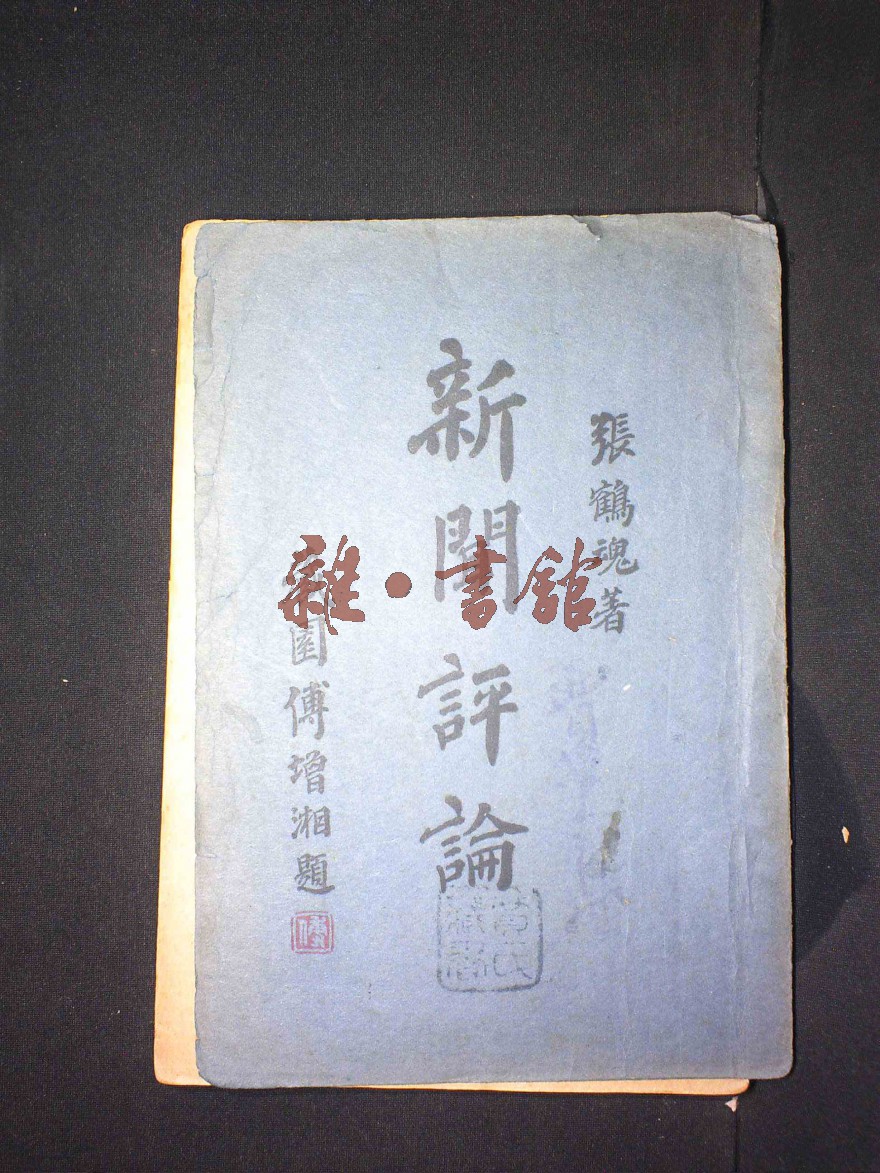 張鶴魂著
新聞評論
園傅增湘題
傅
雜·書館